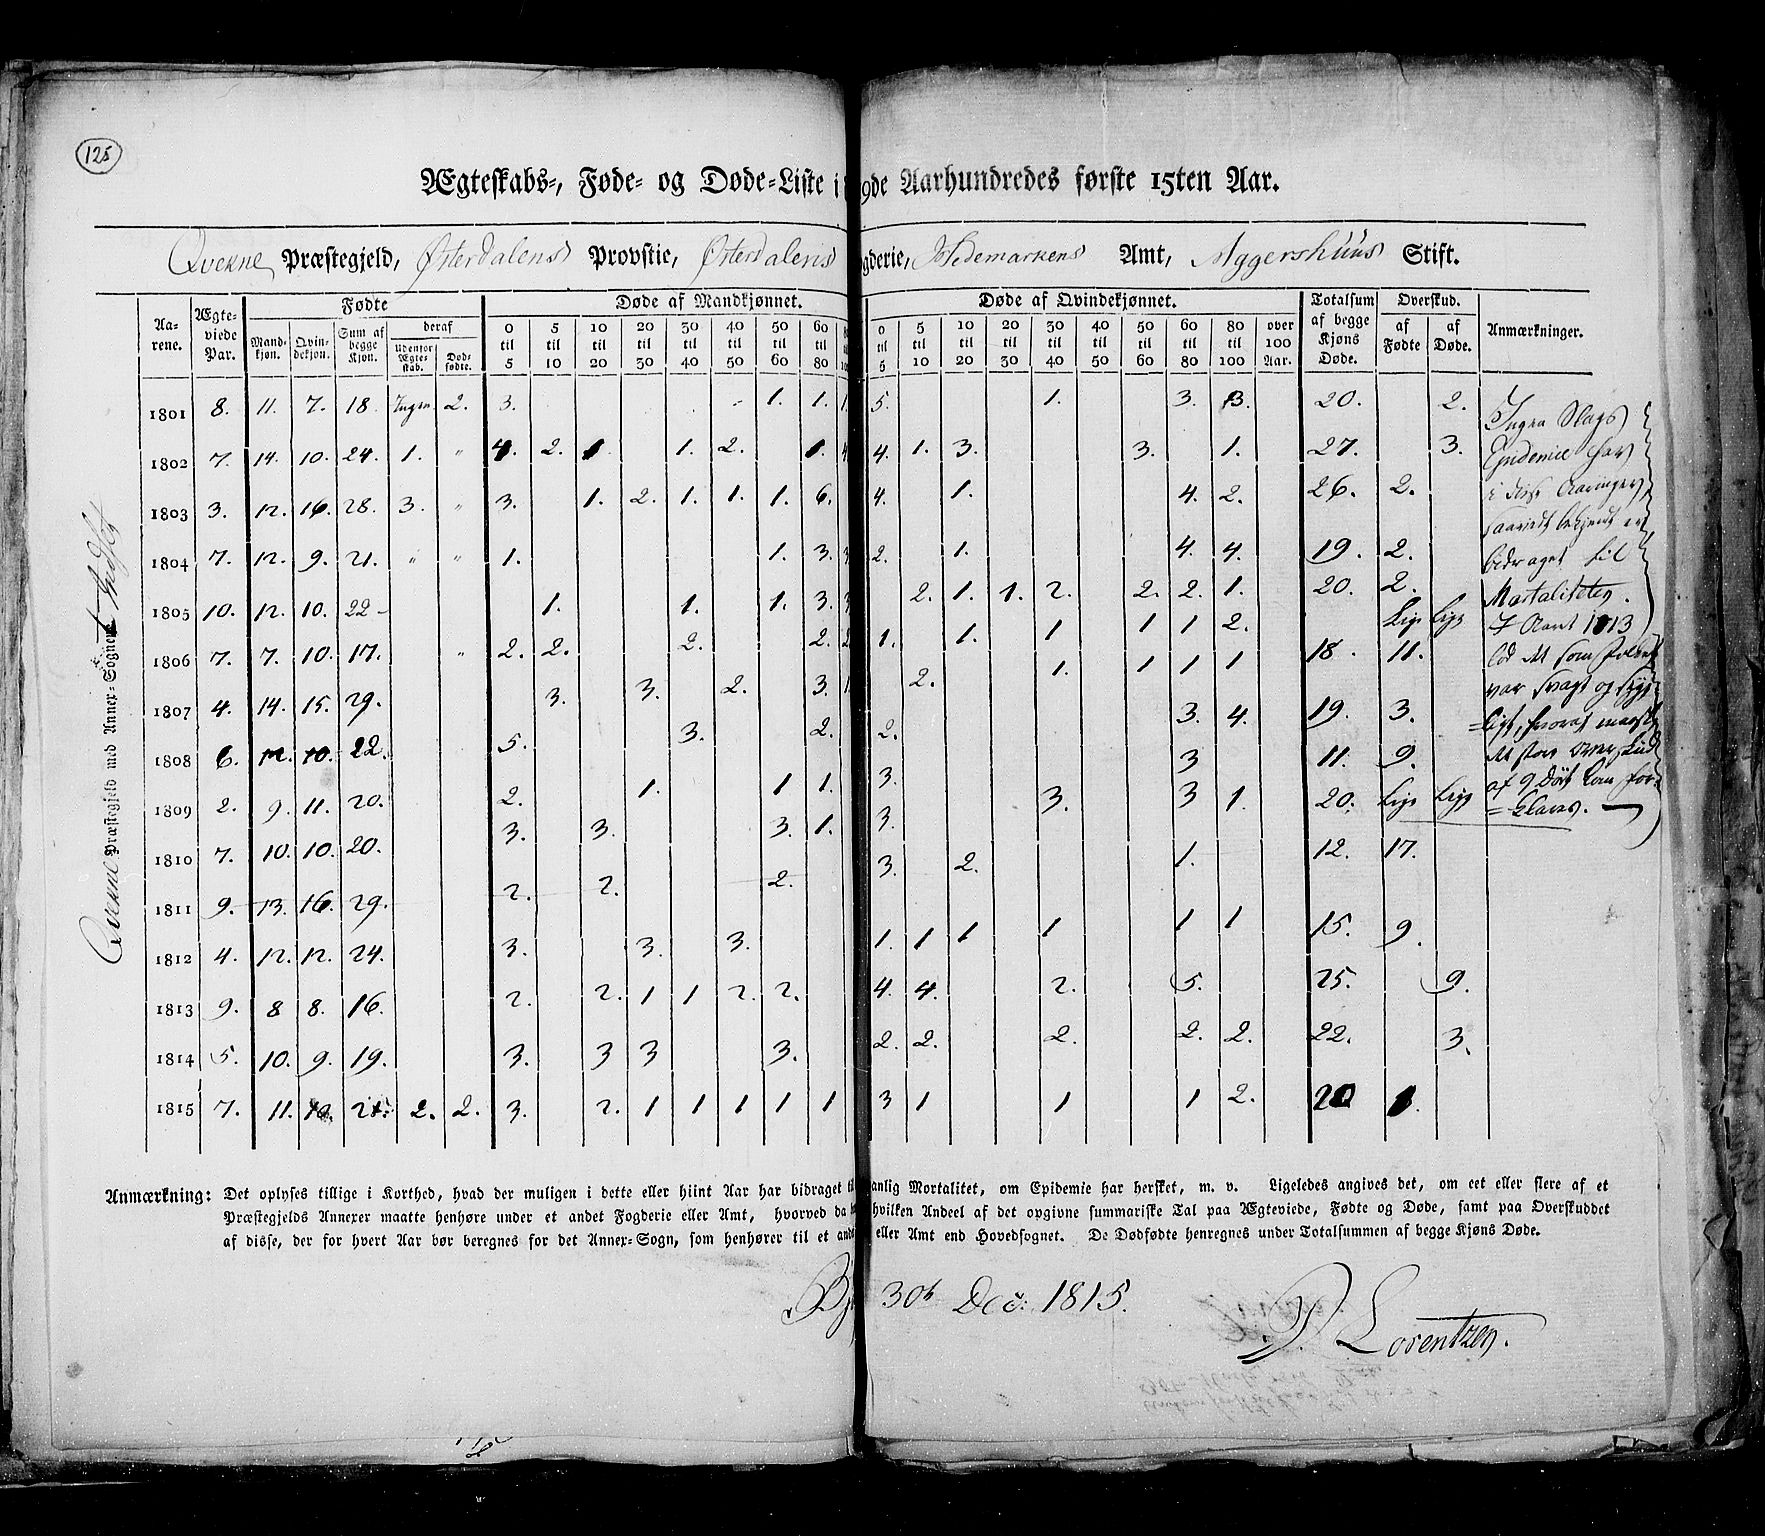 125
Ægteskabs-, Føde- og Døde-Liste i 9de Aarhundredes første 15ten Aar.
Qvekne Præstegjeld, Østerdalens Provstie, Østerdalens gderie, Hedemarkens Amt, Aggershuus Stift.
Aa-rene. Ægte-viede Par. Fødte Døde af Mandkjønnet. Døde af Qvindekjønnet. Totalsum af begge Kjøns Døde. Overskud. Anmærkninger.
Mand-kjøn. Qvin-dekjøn. Sum af begge Kjøn. deraf Udenfor Ægte-skab. Død-fødte.
0 til 5 5 til 10 10 til 20 20 til 30 30 til 40 40 til 50 50 til 60 60 til 80
0 til 5 5 til 10 10 til 20 20 til 30 30 til 40 40 til 50 50 til 60 60 til 80 80 til 100 over 100 Aar. af Fødte af Døde.
1801 8. 11. 7. 18. Ingen 2. 3. 1. 1. 1. 5. 1. 3. 3. 20. 2.
1802 7. 14. 10. 24. 1. " 4. 2. 1 1. 2. 1. 4 4. 1. 3. 3. 1. 27. 3.
1803 3. 12. 16. 28. 3. " 3. 1. 2. 1. 1. 1. 6. 4. 1. 4. 2. 26. 2.
1804 7. 12. 9. 21. " " 1. 1. 3. 3 2. 1. 4. 4. 19. 2.
1805 10. 12. 10. 22- 1. 1. 1. 3. 3 2. 1. 1. 2. 2. 2. 1. 20. 2.
1806 7. 7. 10. 17. " 2. 2. 2. 2. 2 1. 1. 1 1 1 2. Lige Lige
1807 4. 14. 15. 29. 3. 3. 2. 3. 1. 2. 1. 1 1 1 18. 11.
1808 6. 12. 10. 22. 5. 3. 2. 2. 3. 4. 19. 3.
1809 2. 9. 11. 20. 2. 1. 1 1. 3. 3 11. 9.
1810 7. 10. 10. 20. 3. 3. 3. 1. 3. 3. 3 1. 20. Lige Lige
1811 9. 13. 16. 29. 2. 2. 2. 3. 2. 1. 12. 17.
1812 4. 12. 12. 24. 3. 3. 3. 1. 1 1 1 1 1 15. 9.
1813 9. 8 8. 16. 2. 2. 1 1 2. 2. 4. 4. 2. 5. 25. 9.
1814 5. 10. 9. 19. 3. 3 3 3. 2. 2. 2. 2. 2. 22. 3.
1815 7. 11. 10. 21. 2. 2. 3. 2. 1 1 1 1 1 3 1 1 1 2. 20 1.
Ingen Slags
Epidemie har
i disse Aaringer
bidraget til
Mortaliteten.
I Aaret 1813
var svagt og syge
af 9 Døde kan for-
=klares.
Qvekne Præstegjeld med Annex-Sognene
Anmærkning: Det oplyses tillige i Korthed, hvad der muligen i dette eller hiint Aar har bidraget til anlig Mortalitet, om Epidemie har hersket, m. v. Ligeledes angives det, om eet eller flere af et
Præstegjelds Annexer maatte henhøre under et andet Fogderie eller Amt, hvorved da hvilken Andeel af det opgivne summariske Tal paa Ægteviede, Fødte og Døde, samt paa Overskuddet
af disse, der for hvert Aar bør beregnes for det Annex-Sogn, som henhører til et andet eller Amt end Hovedsognet. De Dødfødte henregnes under Totalsummen af begge Kjøns Døde.
30te Dec: 1815.
P. Lorentzen.